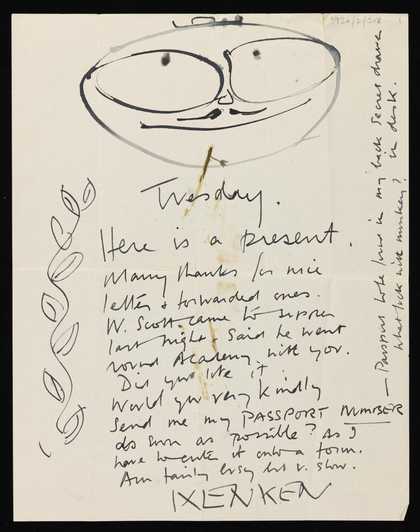 Tuesday.
Here is a present.
Many thanks for nice
letter & forwarded ones.
W. Scott came to supper
last night. Said he went
round Academy with you.
Did you like it?
Would you very kindly
send me my PASSPORT NUMBER
as soon as possible? As I
have to write it onto a form.
Am fairly busy but v. slow.
— Passport to be found in my back secret drawer
in desk.
What luck with monkey?